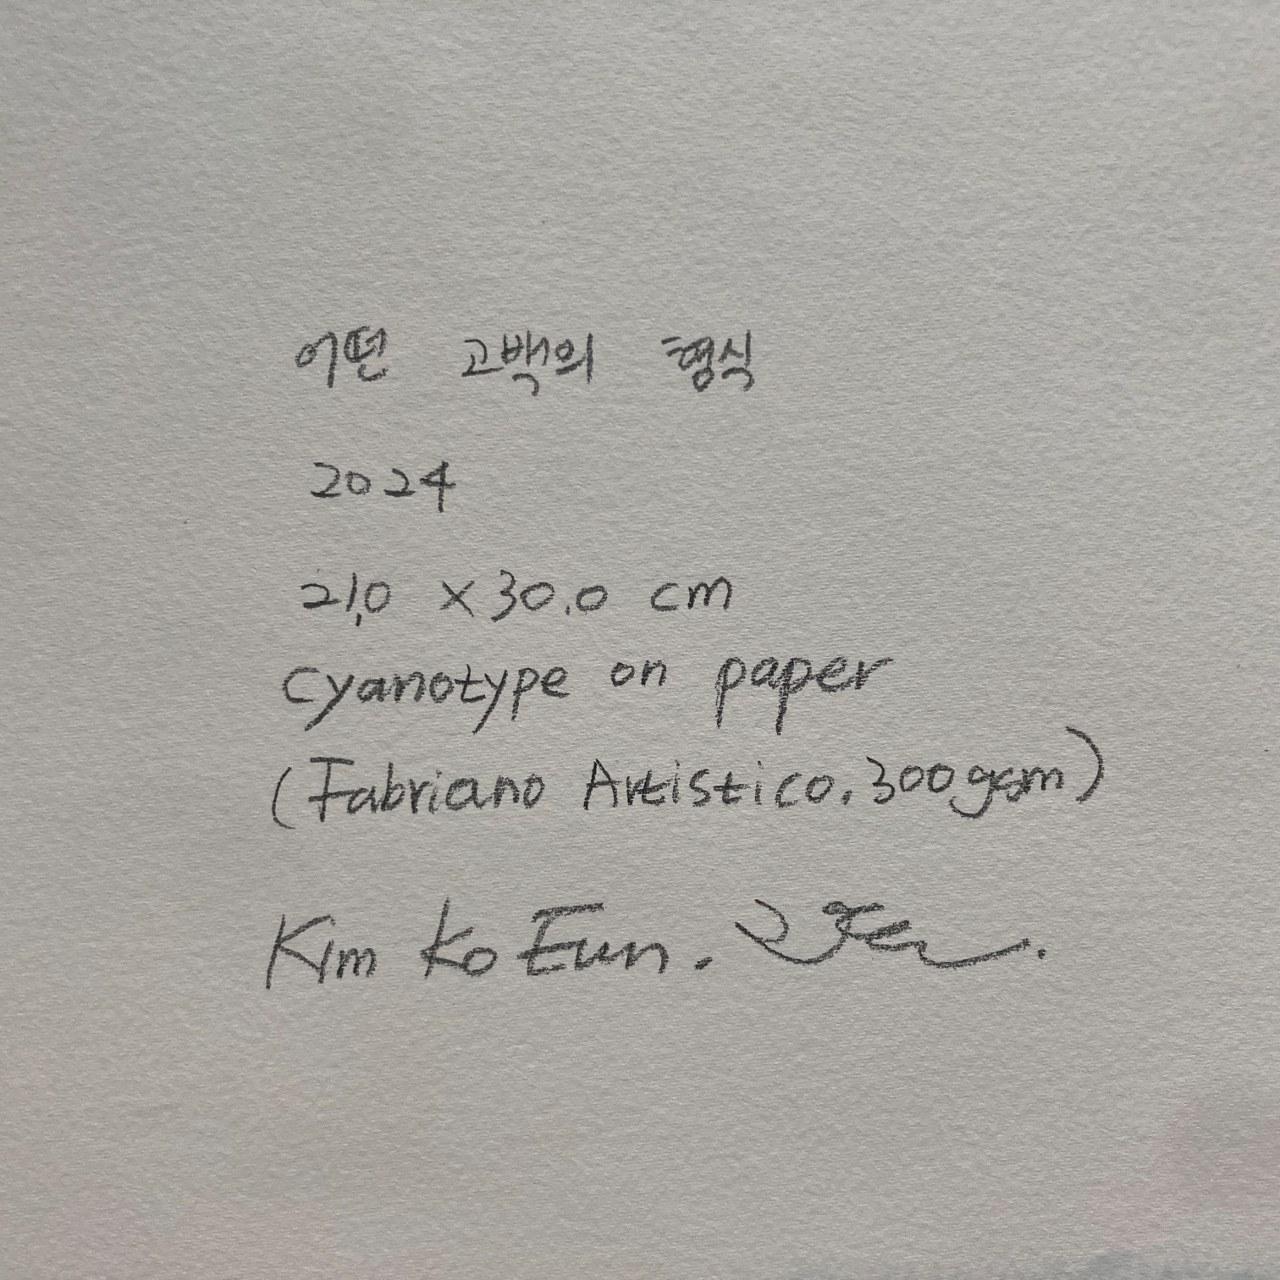 어떤 고백의 형식
2024
21.0 x 30.0 cm
Cyanotype on paper
(Fabriano Artistico. 300gsm)
Kim Ko Eun.